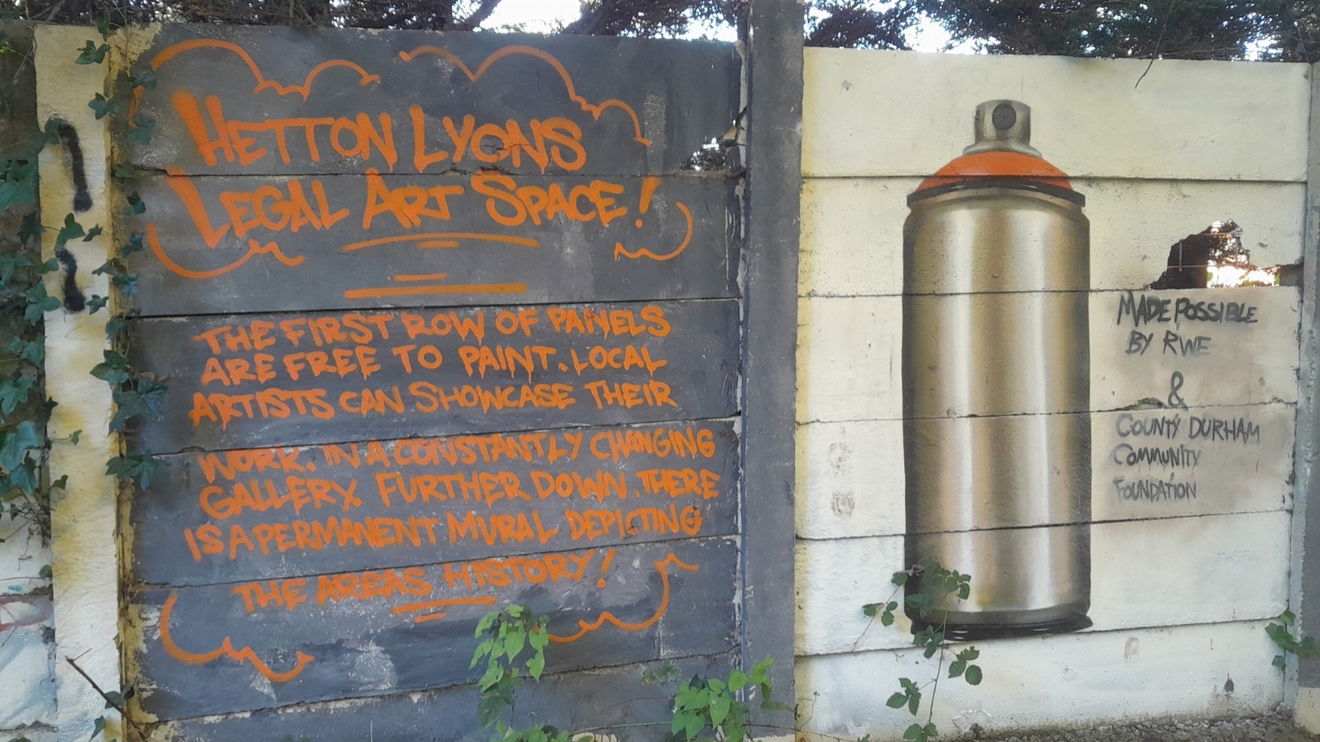 HETTON LYONS
LEGAL ART SPACE!
THE FIRST ROW OF PANELS
ARE FREE TO PAINT. LOCAL
ARTISTS CAN SHOWCASE THEIR
WORK. IN A CONSTANTLY CHANGING
GALLERY. FURTHER DOWN. THERE
IS A PERMANENT MURAL DEPICTING
THE AREAS HISTORY!
MADE POSSIBLE
BY RWE
&
COUNTY DURHAM
COMMUNITY
FOUNDATION